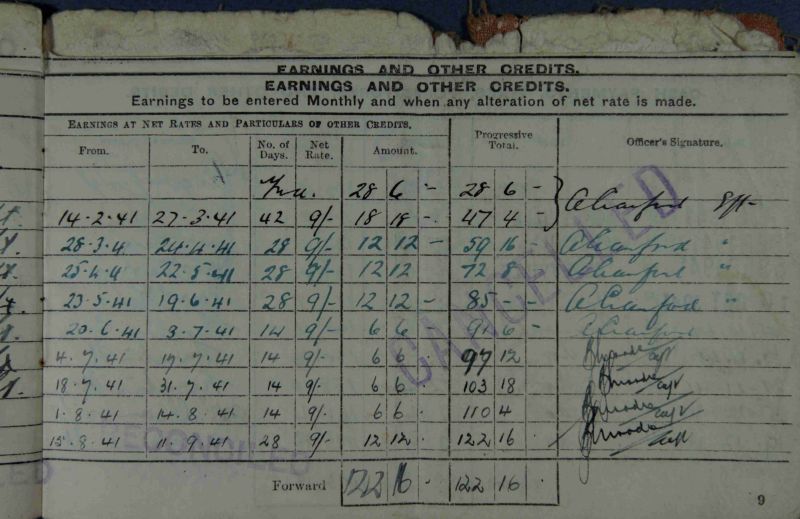 EARNINGS AND OTHER CREDITS.
EARNINGS AND OTHER CREDITS.
Earnings to be entered Monthly and when any alteration of net rate is made.
EARNINGS AT NET RATES AND PARTICULARS OF OTHER CREDITS.
From. To. No. of Days. Net Rate. Amount. Progressive Total. Officer's Signature.
28 6 - 28 6 -
14.2.41 27.3.41 42 9/- 18 18 - 47 4 -
28.3.4 24.4.41 28 9/- 12 12 - 59 16 - "
25.4.4 22.5.41 28 9/- 12 12 72 8 "
23.5.41 19.6.41 28 9/- 12 12 - 85 - - "
20.6.41 3.7.41 14 9/- 6 6 - 91 6 -
4.7.41 17.7.41 14 9/- 6 6 97 12 Capt
18.7.41 31.7.41 14 9/- 6 6 . 103 18 Capt
1.8.41 14.8.41 14 9/- 6 6 . 110 4 Capt
15.8.41 11.9.41 28 9/- 12 12 . 122 16 . Capt
Forward 122 16 - 122 16 .
CANCELLED
RECONCILED
9